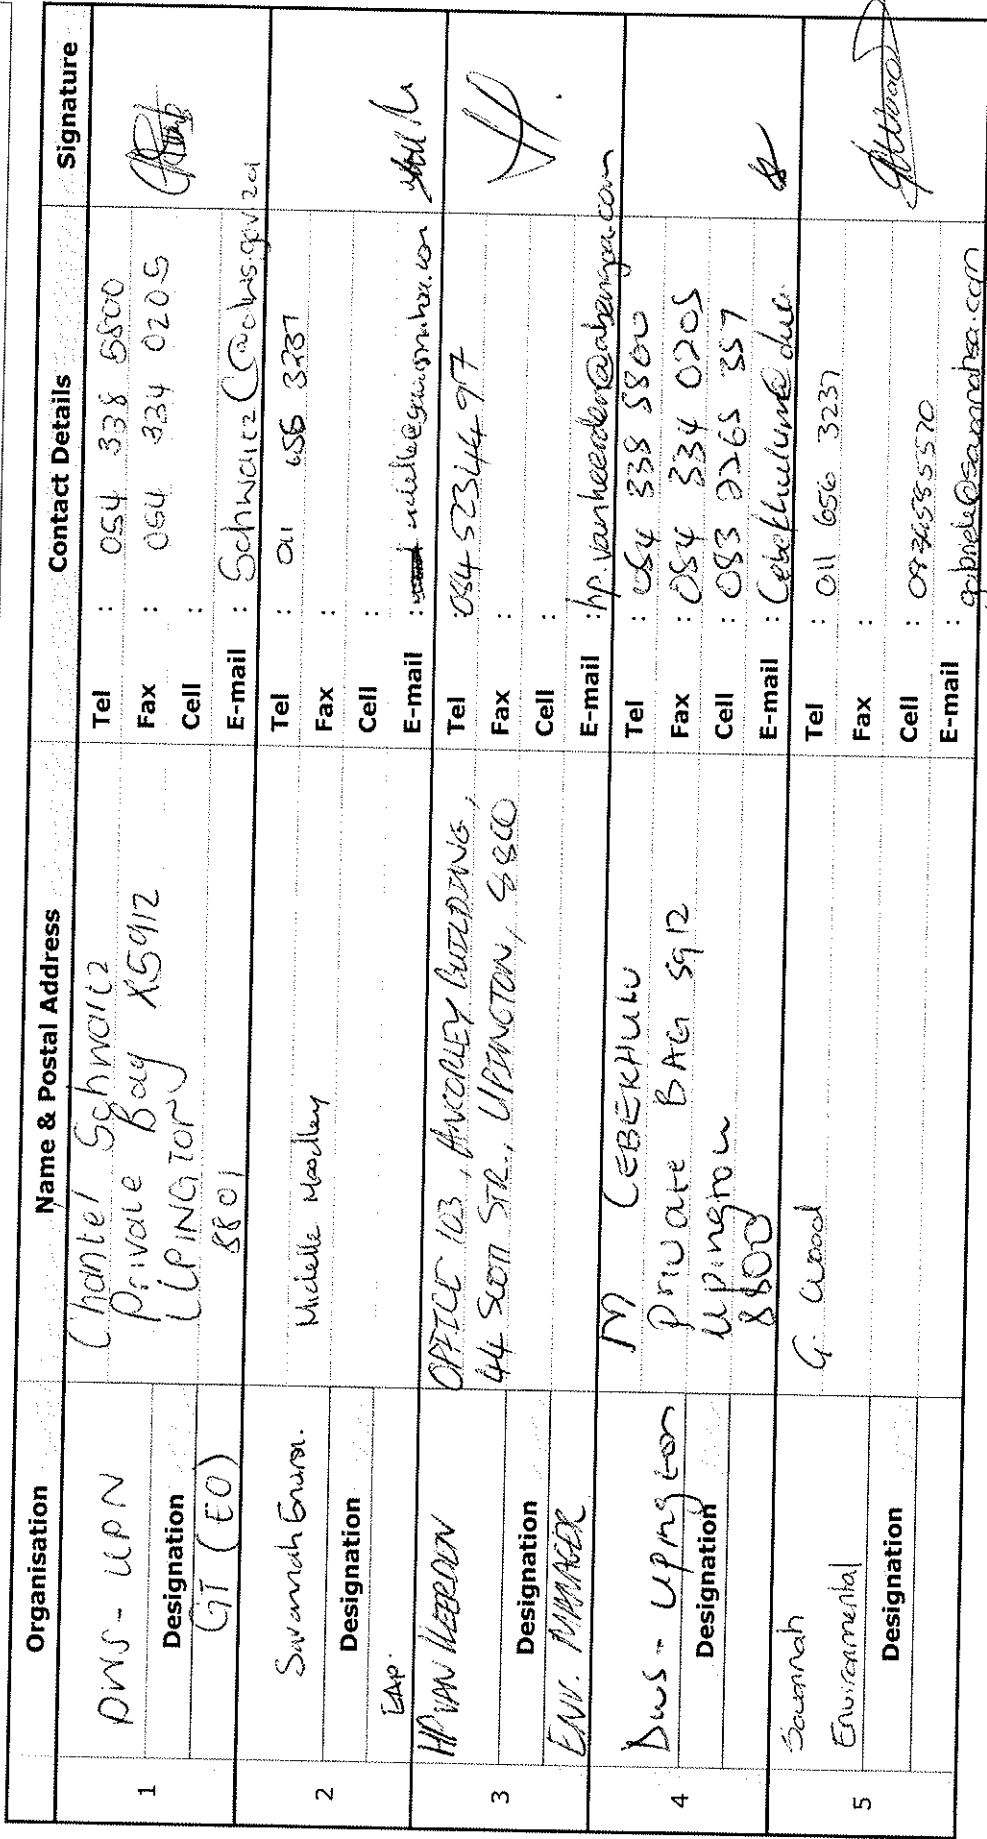 Organisation Name & Postal Address Contact Details Signature
1
DWS - UPN
Designation
GT (EO)
Chantel Schwartz
Private Bag X5912
UPINGTON
8801
Tel : 054 338 5800
Fax : 054 334 0205
Cell :
E-mail : Schwartz
2
Savannah Environ.
Designation
EAP.
Michelle Moodley
Tel : 011 656 3237
Fax :
Cell :
E-mail :
3
HP VAN HEERDEN
Designation
ENV. MANAGER
OFFICE 103, BUILDING,
44 SCOTT STR., UPINGTON, 8800
Tel : 054 5234497
Fax :
Cell :
E-mail : hp.vanheerden@abengoa.com
4
DWS - Upington
Designation
M CEBEKHULU
Private BAG 5912
Upington
8800
Tel : 054 338 5800
Fax : 054 334 0205
Cell : 083 2265 357
E-mail :
5
Savannah
Environmental
Designation
G. Wood
Tel : 011 656 3237
Fax :
Cell :
E-mail : gabriele@savannahsa.com